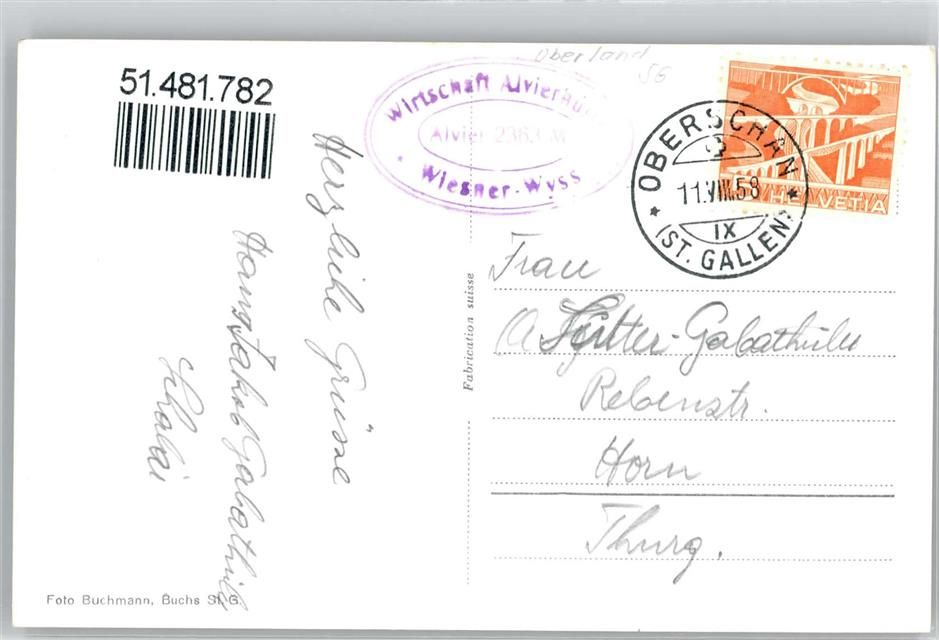 51.481.782
Oberland
SG
Wirtschaft Alvierhü
Alvier 2363 M
Wiesner-Wyss
OBERSCHAN
11.VIII.58
IX
(ST. GALLEN)
HELVETIA
Herzliche Grüsse
Hansjakob Gabathuler
Fabrication suisse
Frau
A. Sutter-Gabathuler
Rebenstr.
Horn
Thurg.
Foto Buchmann, Buchs St. G.